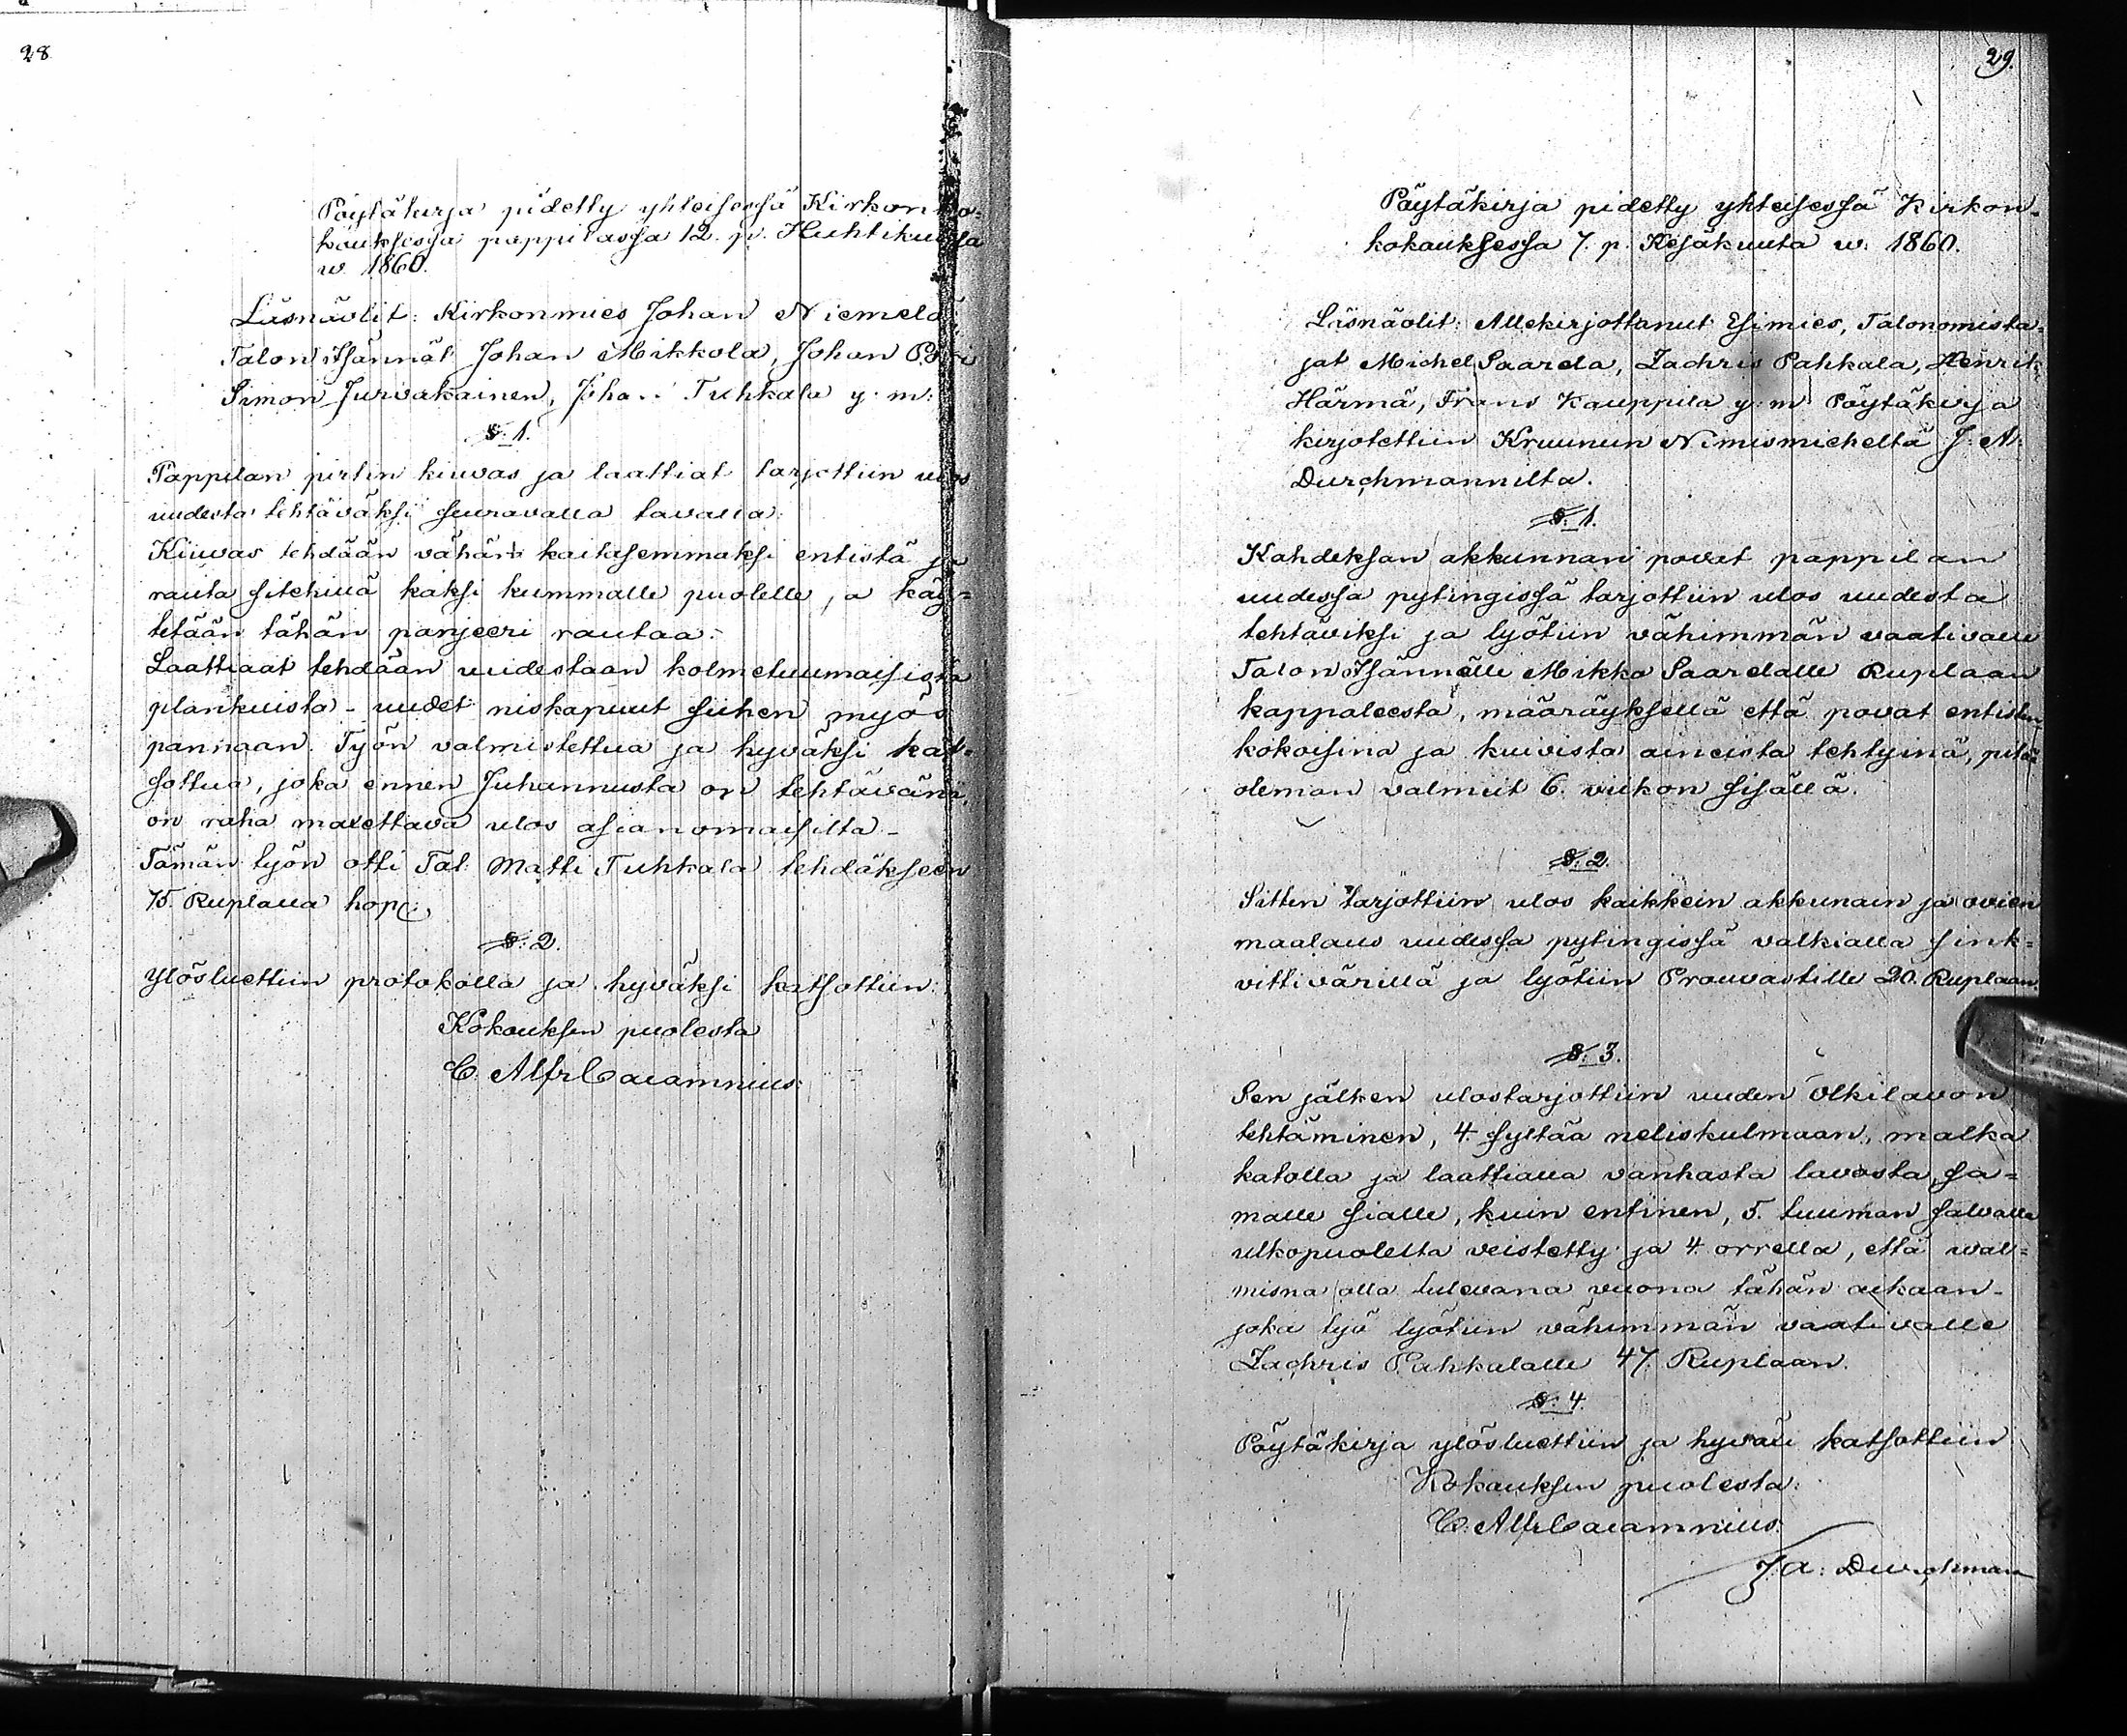 28
Pöytäkirja pidetty yhteisessä Kirkonko-
kouksessa pappilassa 12. p. Huhtikuussa
w. 1860.
Läsnäolit: Kirkonmies Johan Niemelä,
Talon Isännät Johan Mikkola, Johan
Simon Jurvakainen, Joha.. Tuhkala y. m:
§. 1.
Pappilan pirtin kiuvas ja laattiat tarjottiin ulos
uudesta tehtäväksi seuravalla tavalla:
Kiuvas tehdään vähän kaitasemmaksi entistä ja
rauta kaksi kummalle puolelle, a käy-
tetään tähän panjeeri rautaa.
Laattiaat tehdään uudestaan kolmetuumaisista
plankuista - uudet niskapuut siihen myös
pannaan. Työn valmistettua ja hyväksi kat-
sottua, joka ennen Juhannusta on tehtävänä,
on raha maxettava ulos asianomaisilta -
Tämän työn otti Tal: Matti Tuhkala tehdäkseen
75. Ruplalla hop:
§. 2.
Ylösluettiin protokolla ja hyväksi katsottiin:
Kokouksen puolesta
C. Alfr Cajamnius:
29.
Pöytäkirja pidetty yhteisessä Kirkon-
kokouksessa 7. p. Kesäkuuta w. 1860.
Läsnäolit: Allekirjottanut Esimies, Talonomista-
jat Michel Saarela, Zachris Pahkala, Henrik
Härmä, Frans Kauppila y. m. Pöytäkirja
kirjotettiin Kruunun Nimismieheltä J. A.
Durchmannilta.
§. 1.
Kahdeksan akkunnan povat pappilan
uudessa pytingissä tarjottiin ulos uudesta
tehtäviksi ja lyötiin vähimmän vaativalle
Talon Isännälle Mikko Saarelalle Ruplaan
kappaleesta, määräyksellä että povat entisten
kokoisina ja kuivista aineista tehtyinä, pitää
oleman valmiit 6. viikon sisällä.
§. 2.
Sitten tarjottiin ulos kaikkein akkunain ja ovien
maalaus uudessa pytingissä valkialla sink-
vittivärillä ja lyötiin Prouvastille 20. Ruplaan.
§. 3.
Sen jälken ulostarjottiin uuden olkilavon
tehtäminen, 4. syltää neliskulmaan, malka
katolla ja laattialla vanhasta lavosta, sa-
malle sialle, kuin entinen, 5. tuuman salvalla
ulkopuolelta veistetty ja 4. orrella, että wal-
misna olla tulevana vuona tähän aikaan -
joka työ lyötiin vähimmän vaativalle
Zachris Pahkalalle 47. Ruplaan.
§. 4.
Pöytäkirja ylösluettiin ja hyväxi katsottiin
Kokouksen puolesta:
C. Alfr Cajamnius.
J. A: Durchman